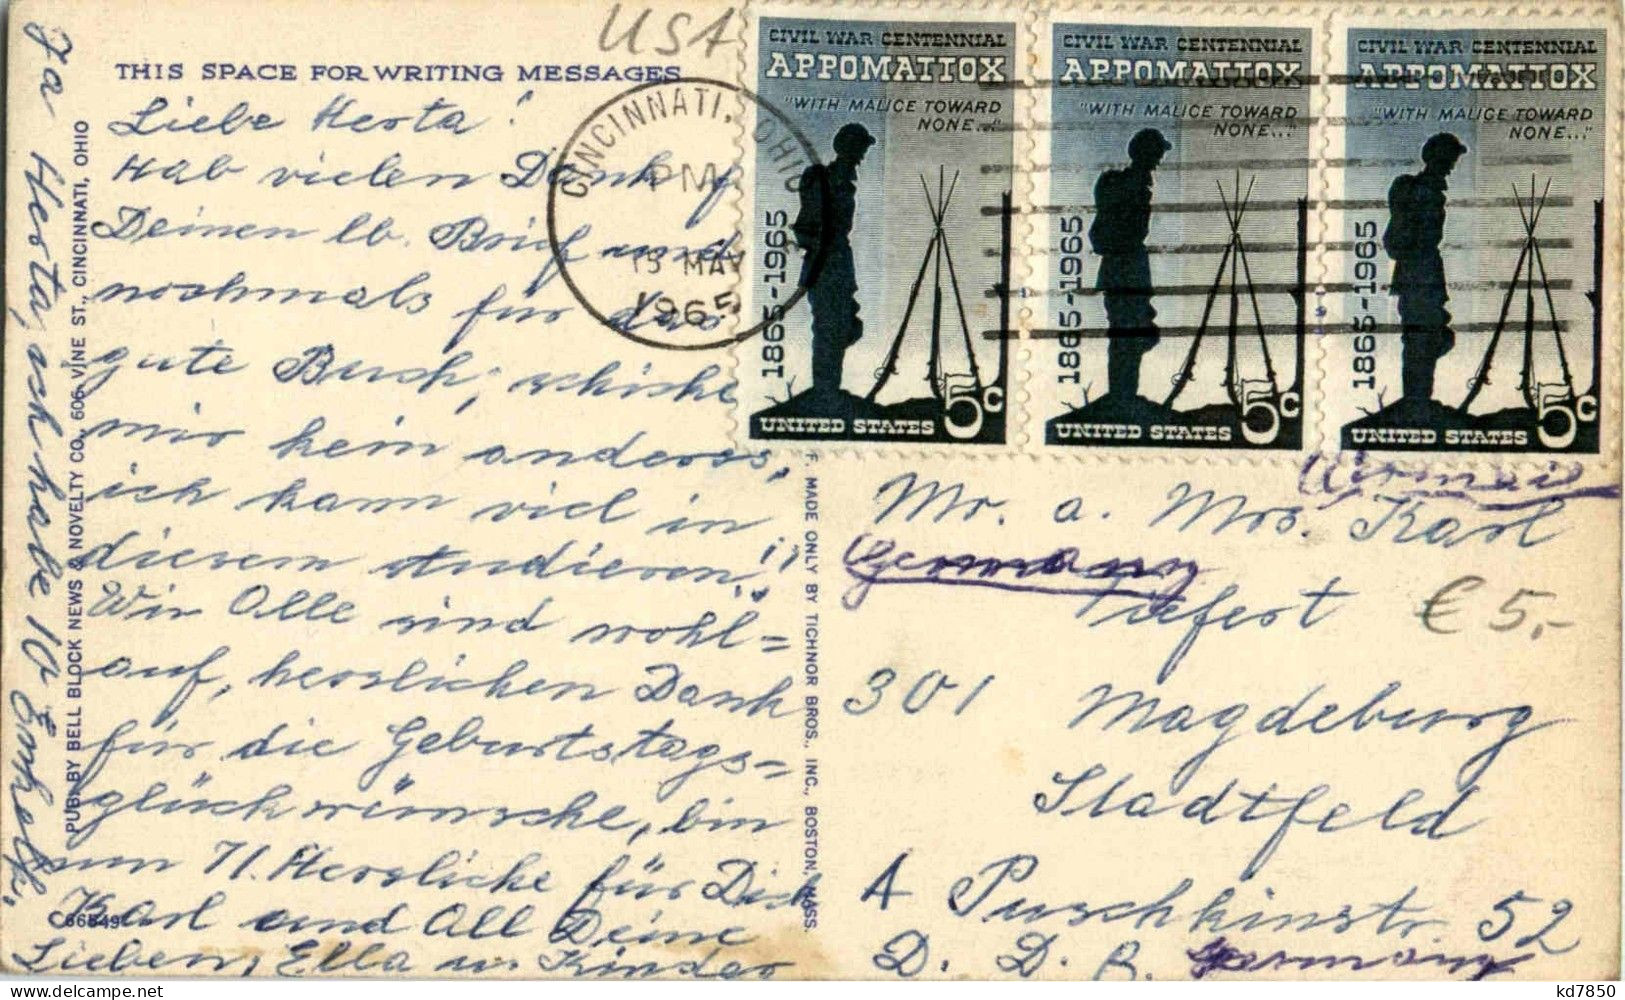 USA
THIS SPACE FOR WRITING MESSAGES
Liebe Herta!
Hab vielen Dank f
Deinen lb. Brief und
nochmals für das
gute Buch, schicke
mir kein anderes,
ich kann viel in
diesem studieren!!
Wir Alle sind wohl=
auf, herzlichen Dank
für die Geburtstags=
glückwünsche, bin
nun 71. Herzliche für Dich
Karl und All Deine
Lieben, Ella u. Kinder
Ja Herta, ich habe 10 Enkelk.
PUB. BY BELL BLOCK NEWS & NOVELTY CO., 606 VINE ST., CINCINNATI, OHIO
C66549
F. MADE ONLY BY TICHNOR BROS., INC., BOSTON, MASS.
CINCINNATI, OHIO
PM
13 MAY
1965
CIVIL WAR CENTENNIAL
APPOMATTOX
"WITH MALICE TOWARD
NONE..."
1865-1965
5c
UNITED STATES
CIVIL WAR CENTENNIAL
APPOMATTOX
"WITH MALICE TOWARD
NONE..."
1865-1965
5c
UNITED STATES
CIVIL WAR CENTENNIAL
APPOMATTOX
"WITH MALICE TOWARD
NONE..."
1865-1965
5c
UNITED STATES
Airmail
Mr. a. Mrs. Karl
Germany
Tiefert
€ 5,-
301 Magdeburg
Stadtfeld
A Puschkinstr. 52
D. D. R. Germany
kd7850